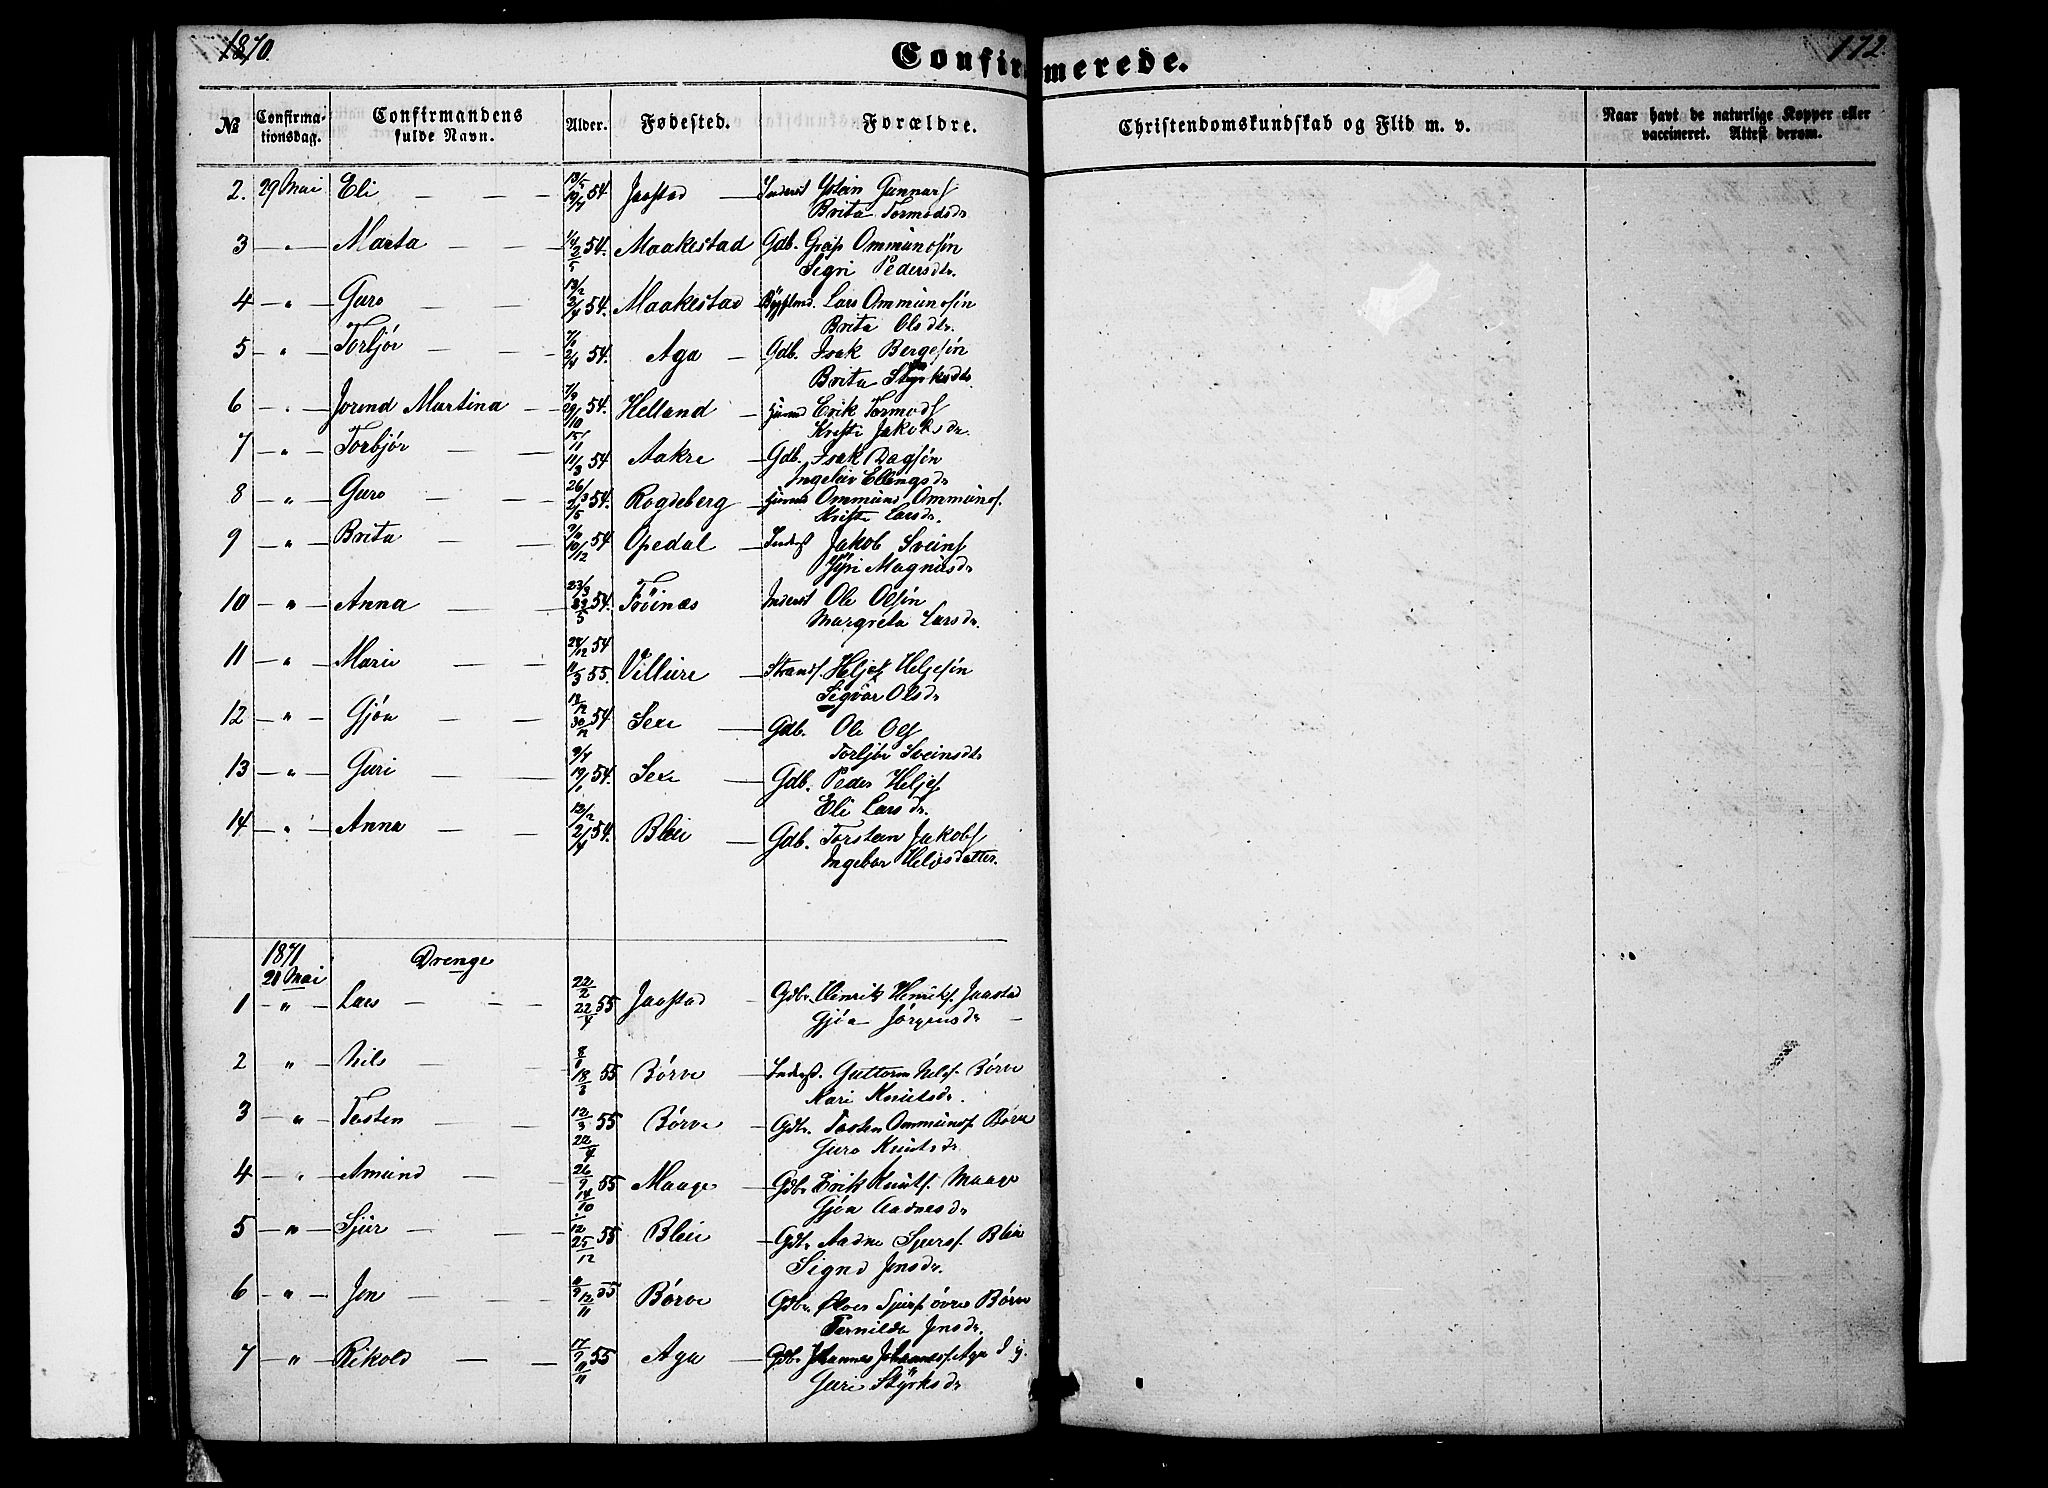 1870.
Confirmerede.
172.
№ Confirmationsdag. Confirmandens fulde Navn. Alder. Fødested. Forældre. Christendomskundskab og Flid m. v. Naar havt de naturlige Kopper eller vaccineret. Attest derom.
2. 29 Mai Eli — — 54. Jaastad — Inderst Ystein Gunnars
Brita Tormodsdr
3 — " — Marta — — 54. Maakestad Gdb. Greip Ommundsøn
Sigri Pedersdtr.
4 — " — Guro — — 54. Maakestad Lars Ommundsøn
Brita Olsdtr.
5 — " — Torbjør — — 54. Aga — Gdb. Isak Bergesøn
Brita Styrksdtr
6 — " — Jorend Martina — 54. Helland — Erik Tormods
Kristi Jakobsdr.
7 — " — Torbjør — — 11/3 54 Aakre — Gdb. Isak Dagsøn
Ingeleiv Ellingsdr
8 — " — Guro — — 54. Rogdeberg — Ommund Ommunds.
Kristi Larsdr.
9 — " — Brita — — 10/12 54 Opedal — Inderst Jakob Sveins
Magnusdr
10 — " — Anna — — 54. Tröinæs Inderst Ole Olsøn
Margreta Larsdr.
11 — " — Marie — — 28/12 54 55. Villure — Strands. Heljes Heljesøn
Sigvør Olsdr
12 — " — Gjøa — — 54 Sexe — Gdb. Ole Ols
Torbjør Sveinsdtr
13 — " — Guri — — 54. Sexe — Gdb. Peder Heljes
Eli Larsdr.
14 — " — Anna — — 54. Bleie — Gdb. Torstein Jakobs
Ingebor Helјesdatter.
1871 Drenge
21 Mai
1 — " — Lars — — 22/2 22/4 55 Jaastad Gdbr. Henrik Henriks. Jaastad
Gjøa Jørgensdr —
2 " Nils — 18/3 55 Børve — Inderst. Guttorm Nils. Børve
Kari Knutsdr.
3 — " — Tosten — 12/3 22/4 55 Børve — Gdbr. Tosten Ommunds. Børve
Guro Knutsdr
4 — " — Amund — 26/9 14/10 55 Maage — Gdbr Erik Knuts. Maage
Gjøa Aadnesdr
5 — " — Sjur — — 25/12 55 Bleie — Gdbr Aadne Sjurs. Bleie
Signe Jensdr.
6 — " — Jon — — 12/11 55 Børve Gdbr. Sjurs. øvre Børve
Tornilda Jonsdr.
7 — " — Rikold — — 17/9 55 Aga — Gdbr Johannes Johannes. Aga
Guri Styrksdr